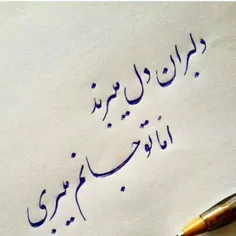 دلبران دل میبرند
اما تو جانم میبری